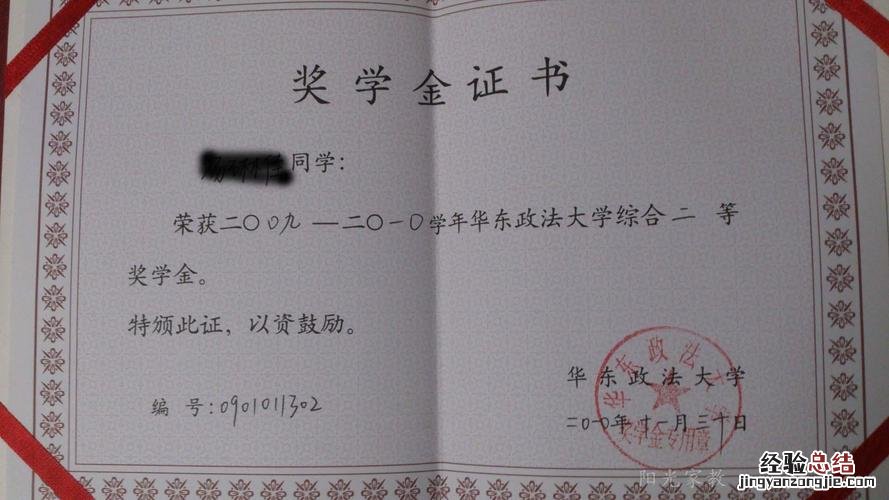 奖学金证书
同学：
荣获二〇〇九—二〇一〇学年华东政法大学综合二等
奖学金。
特颁此证，以资鼓励。
华东政法大学
编号：0901011302
二〇一〇年十一月三十日
华东政法大学
奖学金专用章
阳光家教
经验总结
jingyanzongjie.com